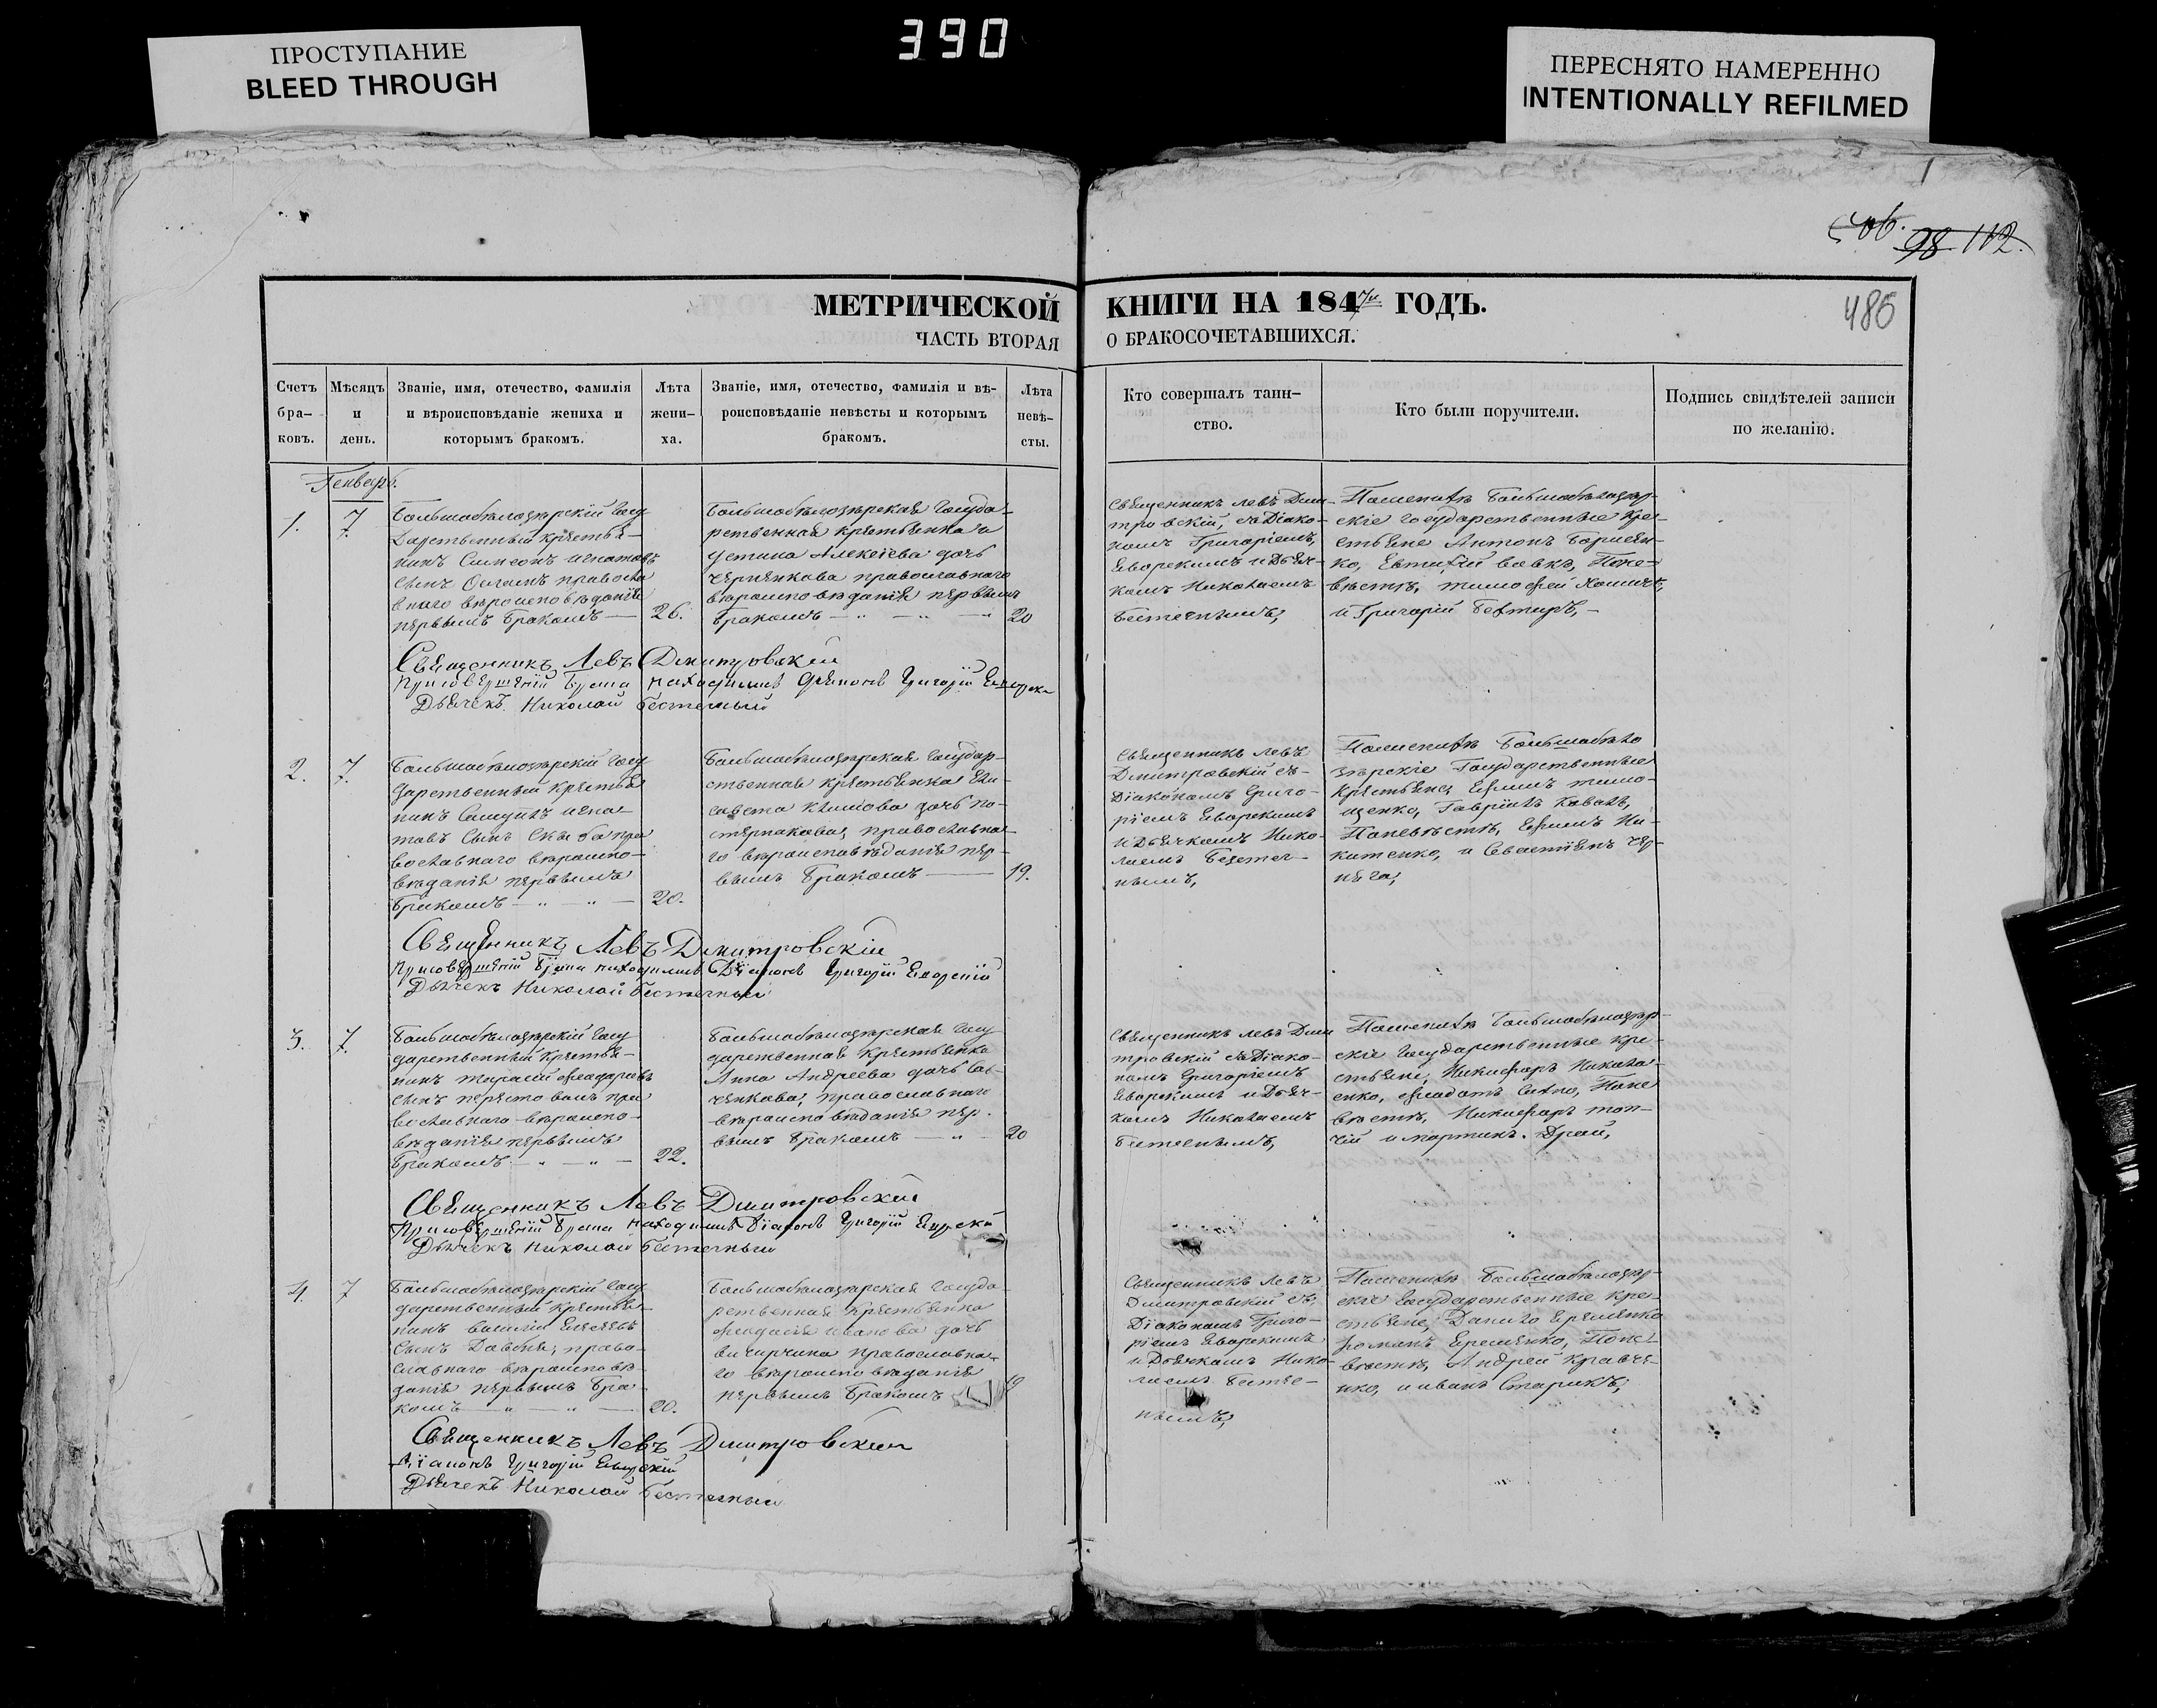 390
ПРОСТУПАНИЕ
BLEED THROUGH
ПЕРЕСНЯТО НАМЕРЕННО
INTENTIONALLY REFILMED
98 112.
486
МЕТРИЧЕСКОЙ КНИГИ НА 1847 ГОДЪ.
ЧАСТЬ ВТОРАЯ О БРАКОСОЧЕТАВШИХСЯ.
Счетъ бра-ковъ.
Мѣсяцъ и день.
Званіе, имя, отечество, фамилія и вѣроисповѣданіе жениха и которымъ бракомъ.
Лѣта жени-ха.
Званіе, имя, отечество, фамилія и вѣ-роисповѣданіе невѣсты и которымъ бракомъ.
Лѣта невѣ-сты.
Кто совершалъ таин-ство.
Кто были поручители.
Подпись свидѣтелей записи по желанію.
Генварь.
1.
7.
Большобѣлозѣрскій Госу
дарственный крестья-
нинъ Симеонъ Игнатовъ
сынъ православ
внаго вѣроисповѣданія
первымъ бракомъ
26.
Большобѣлозѣрская Государ-
ственная крестьянка
Устина Алексѣева дочь
православнаго
вѣроисповѣданія первымъ
бракомъ
20
Священникъ Левъ Дми-
тровскій, съ Діако-
номъ Григоріемъ
и Дьяч-
комъ Николаемъ
По женихѣ Большобѣлозѣр-
скіе Государственные кре-
стьяне Антонъ Борисен-
ко, Евтифій Вовкъ, По не-
вѣстѣ, Тимофей
и Григорій
Священникъ Левъ Димитровскій
При совершеніи брака находились Діаконъ Григорій
Дьячекъ Николай
2.
7.
Большобѣлозѣрскій Госу
дарственный крестья
нинъ Игна-
товъ сынъ пра
вославнаго вѣроиспо-
вѣданія первымъ
бракомъ
20.
Большобѣлозѣрская Государ-
ственная крестьянка Ели-
савета Климова дочь По-
стернакова, православна-
го вѣроисповѣданія пер-
вымъ бракомъ
19.
Священникъ Левъ
Дмитровскій съ
Діакономъ Григо-
ріемъ
и Дьячкомъ Нико-
лаемъ
нымъ,
По женихѣ Большобѣло
зѣрскіе Государственные
крестьяне, Ефимъ Тимо-
щенко, Гавріилъ Коваль,
По невѣстѣ, Ефимъ Ни-
китенко, и Севастіянъ Чер-
нега,
Священникъ Левъ Димитровскій
При совершеніи брака находились Діаконъ Григорій
Дьячекъ Николай
3.
7.
Большобѣлозѣрскій Госу
дарственный крестья-
нинъ Тарасій Феодоровъ
сынъ пра
вославнаго вѣроиспо-
вѣданія первымъ
бракомъ
22.
Большобѣлозѣрская Госу
дарственная крестьянка
Анна Андреева дочь Сав-
ченкова, православнаго
вѣроисповѣданія пер-
вымъ бракомъ
20
Священникъ Левъ Дми
тровскій съ Діако-
номъ Григоріемъ
и Дьяч-
комъ Николаемъ
По женихѣ Большобѣлозѣр-
скіе Государственные кре-
стьяне, Никифоръ Никола-
енко, По не
вѣстѣ, Никифоръ Топ-
чій и Мартинъ Драй,
Священникъ Левъ Димитровскій
При совершеніи брака находились Діаконъ Григорій
Дьячекъ Николай
4.
7
Большобѣлозѣрскій Госу
дарственный крестья-
нинъ Василій Елисеевъ
сынъ Довбня, право-
славнаго вѣроисповѣ-
данія первымъ бра-
комъ
20.
Большобѣлозѣрская Госуда-
рственная крестьянка
Феодосія Иванова дочь
православна-
го вѣроисповѣданія
первымъ бракомъ
19
Священникъ Левъ
Димитровскій съ
Діакономъ Григо-
ріемъ
и Дьячкомъ Нико-
лаемъ
нымъ,
По женихѣ Большобѣлозѣр-
скіе Государственные кре-
стьяне, Данило Еременко
Романъ Еременко, По не-
вѣстѣ, Андрей Кравче-
нко, и Иванъ Старикъ,
Священникъ Левъ Димитровскій
Діаконъ Григорій
Дьячекъ Николай